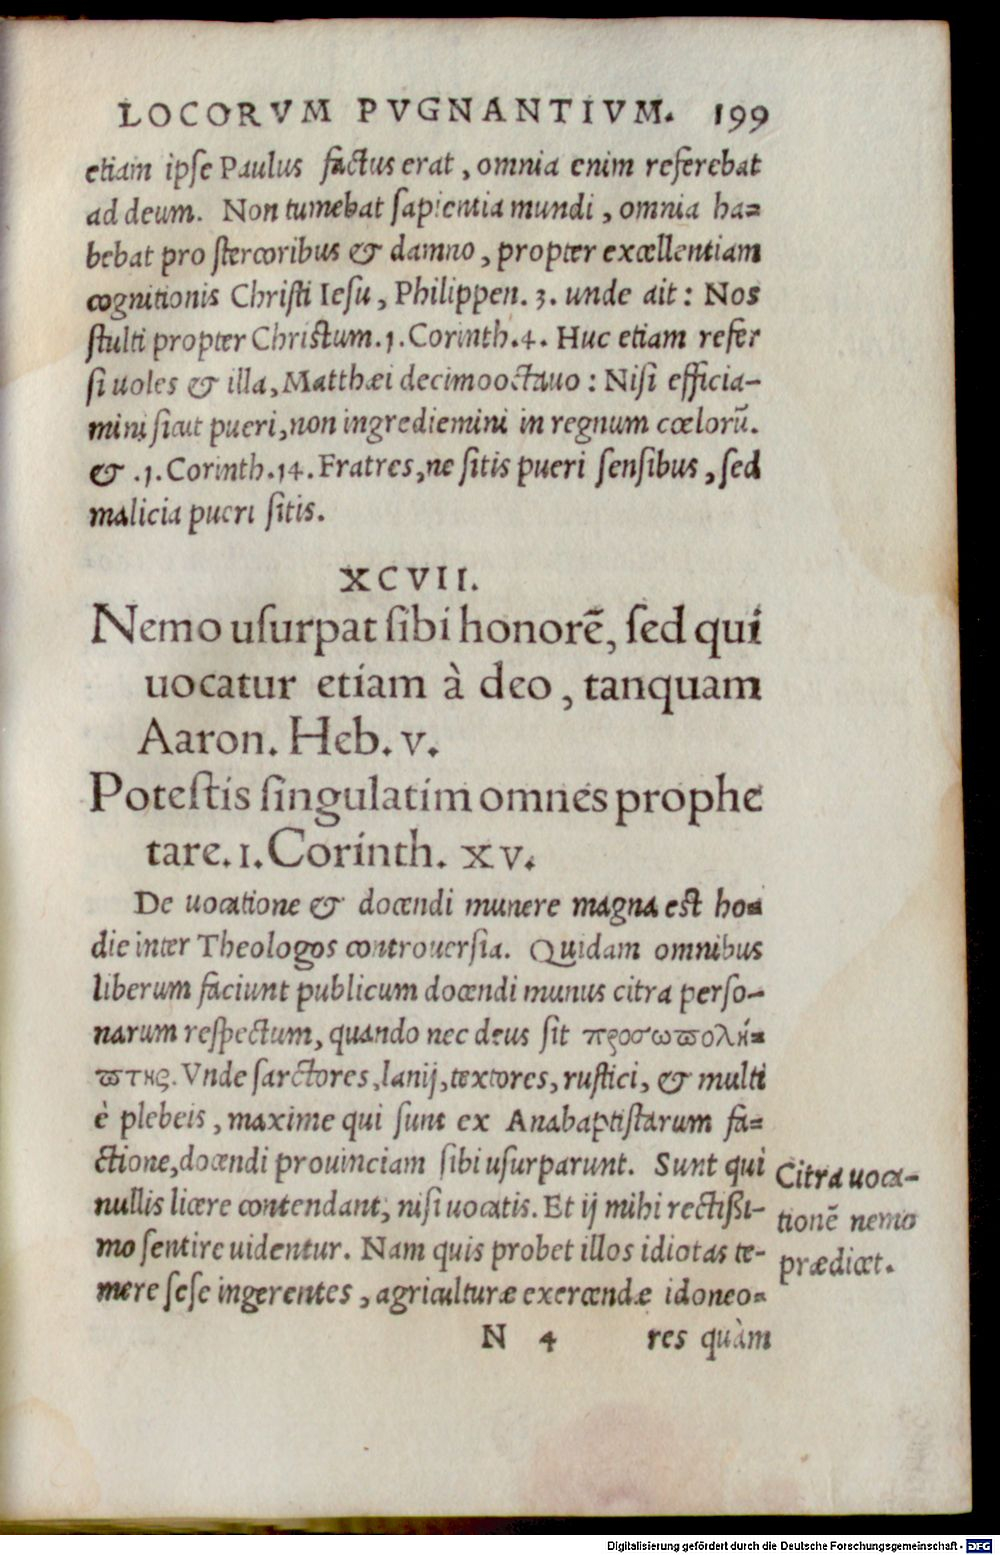 LOCORVM PVGNANTIVM. 199
etiam ipſe Paulus factus erat, omnia enim referebat
ad deum. Non tumebat ſapientia mundi, omnia ha=
bebat pro ſtercoribus & damno, propter excellentiam
cognitionis Chriſti Ieſu, Philippen. 3. unde ait: Nos
ſtulti propter Chriſtum. 1. Corinth. 4. Huc etiam refer
ſi uoles & illa, Matthæi decimooctauo: Niſi efficia-
mini ſicut pueri, non ingrediemini in regnum cœlorũ.
& .1. Corinth. 14. Fratres, ne ſitis pueri ſenſibus, ſed
malicia pueri ſitis.
XCVII.
Nemo uſurpat ſibi honorẽ, ſed qui
uocatur etiam à deo, tanquam
Aaron. Heb. v.
Poteſtis ſingulatim omnes prophe
tare. 1. Corinth. xv.
De uocatione & docendi munere magna eſt ho=
die inter Theologos controuerſia. Quidam omnibus
liberum faciunt publicum docendi munus citra perſo-
narum reſpectum, quando nec deus ſit προσωπολή=
πτης. Vnde ſarctores, lanij, textores, ruſtici, & multi
è plebeis, maxime qui ſunt ex Anabaptiſtarum fa=
ctione, docendi prouinciam ſibi uſurparunt. Sunt qui
nullis licere contendant, niſi uocatis. Et ij mihi rectißi-
mo ſentire uidentur. Nam quis probet illos idiotas te-
mere ſeſe ingerentes, agriculturæ exercendæ idoneo=
Citra uoca-
tionẽ nemo
prædicet.
N 4 res quàm
Digitalisierung gefördert durch die Deutsche Forschungsgemeinschaft - DFG